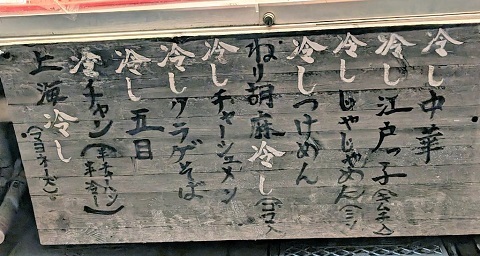 冷し中華
冷し江戸っ子(キムチ入)
冷しじゃじゃめん(ミソ)
冷しつけめん
ねり胡麻冷し(ゴマ入
冷しチャーシュメン
冷しクラゲそば
冷し五目
冷チャン(半チャーハン半冷し)
上海冷し(マヨネーズ)